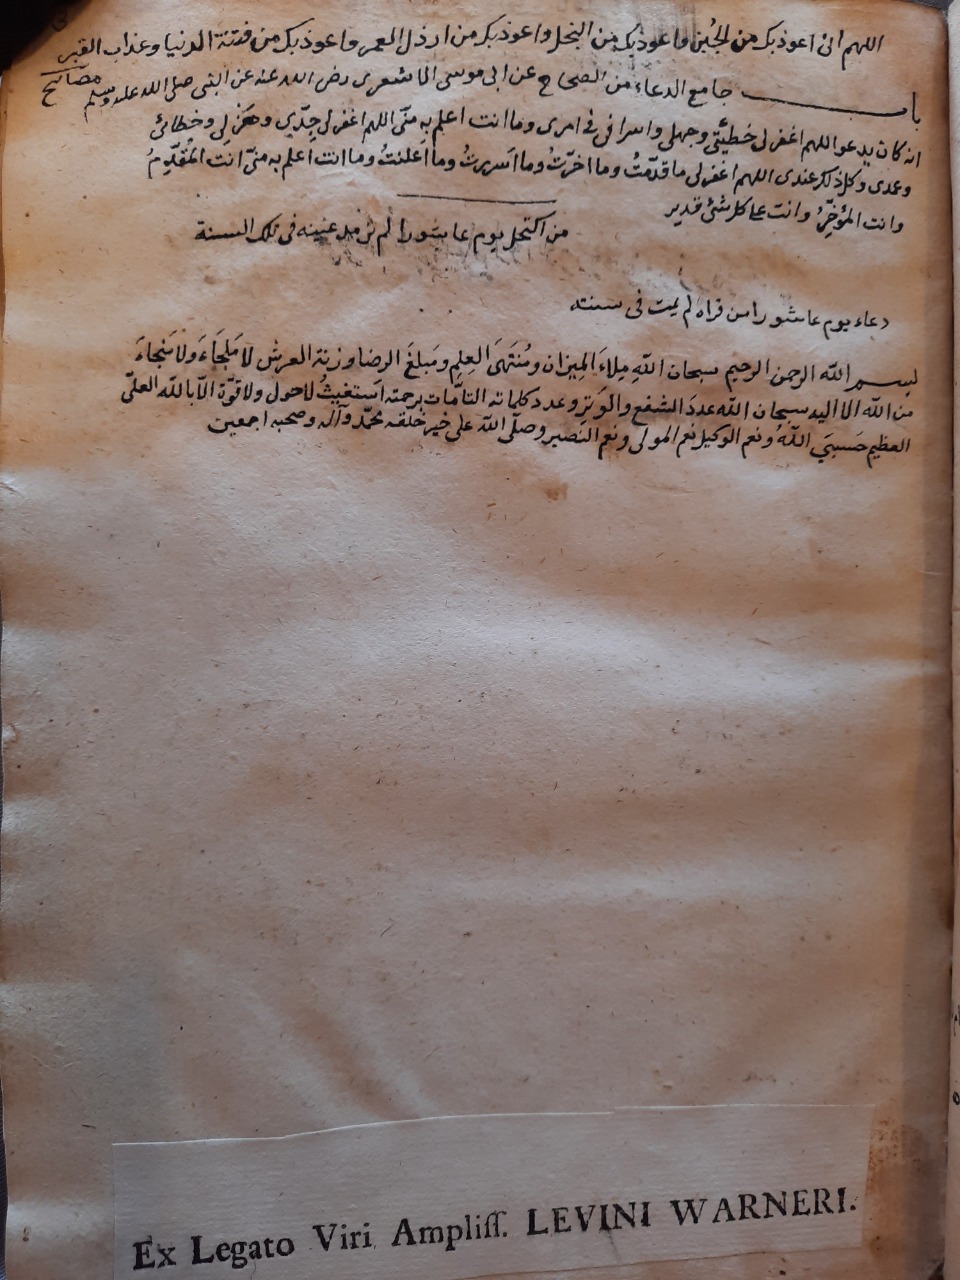 اللهم انى اعوذ بك من الجُبن واعوذ بك من البخل واعوذ بك من ارذل العمر واعوذ بك من فتنة الدنيا وعذاب القبر
مصابيح
باب جامع الدعاء من الصحاح عن ابى موسى الاشعرى رضى الله عنه عن النبى صلى الله عليه وسلم
انه كان يدعو اللهم اغفر لى خطيئتى وجهلى واسرافى فى امرى وما انت اعلم به منّى اللهم اغفر لى جِدّى وهَزلى وخطائى
وعمدى وكل ذلك عندى اللهم اغفر لى ما قدّمتُ وما اخرّتُ وما اَسررتُ وما اَعلنتُ وما انت اعلم به منّى انت المُقدّمُ
وانت المؤخِّرُ وانت على كل شئ قدير
من اكتحل يوم عاشورا لم ترمد عينيه فى تلك السنة
دعاء يوم عاشورا من قراه لم يمت فى سنته
بسم الله الرحمن الرحيم سبحان اللهِ مِلاءَ المِيزان ومُنتَهَى العِلمِ ومَبلغَ الرضا وزنة العرش لا مَلجَاءَ ولا مَنجاءَ
من الله الا اليه سبحان الله عددَ الشفع والوَترِ وعدد كلماته التامّات برحمته اَستغيثُ لاحول ولا قوّة الّا بالله العلىّ
العظيم حَسبىَ اللّهُ ونعم الوكيل نعم المولى ونعم النّصير وصلّى الله على خير خلقه محمّد وآله وصحبه اجمعين
Ex Legato Viri Ampliſſ. LEVINI WARNERI.